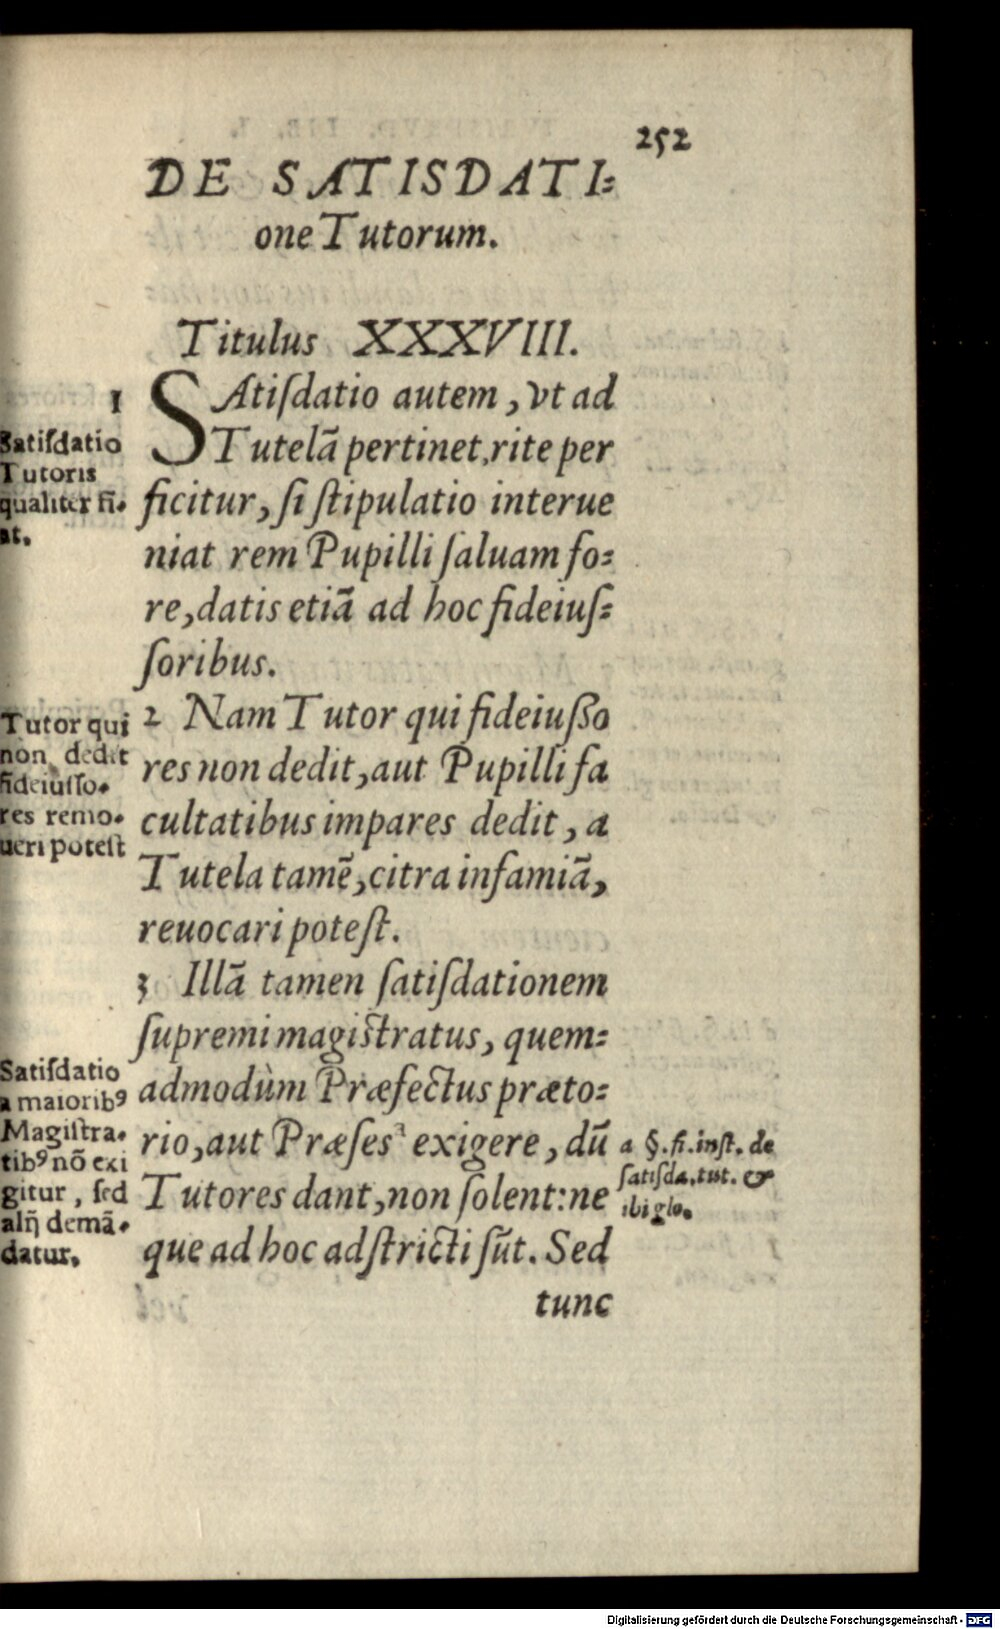 252
DE SATISDATI⸗
one Tutorum.
Titulus XXXVIII.
1
SAtiſdatio autem, vt ad
Tutelã pertinet, rite per
ficitur, ſi ſtipulatio interue
niat rem Pupilli ſaluam fo⸗
re, datis etiã ad hoc fideiuſ⸗
ſoribus.
Satiſdatio
Tutoris
qualiter fi⸗
at.
2 Nam Tutor qui fideiuſſo
res non dedit, aut Pupilli fa
cultatibus impares dedit, a
Tutela tamẽ, citra infamiã,
reuocari poteſt.
Tutor qui
non dedit
fideiuſſo⸗
res remo⸗
ueri poteſt
3 Illã tamen ſatiſdationem
ſupremi magiſtratus, quem⸗
admodùm Præfectus præto⸗
rio, aut Præſes a exigere, dũ
Tutores dant, non ſolent: ne
que ad hoc adſtricti ſũt. Sed
tunc
Satiſdatio
a maioribꝰ
Magiſtra⸗
tibꝰ nõ exi
gitur, ſed
alij̃ demã⸗
datur.
a §. fi. inſt. de
ſatiſda. tut. &
ibi glo.
Digitalisierung gefördert durch die Deutsche Forschungsgemeinschaft - DFG